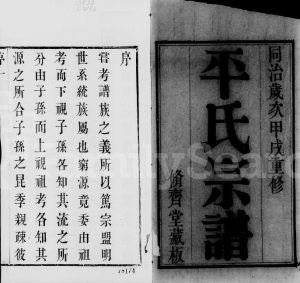 同治歲次甲戌重修
平氏宗譜
脩齊堂藏板
序
嘗考譜族之義所以篤宗盟明
世系統族屬也窮源竟委由祖
考而下視子孫各知其流之所
分由子孫而上視祖考各知其
源之所合子孫之昆季親疎彼
序一
FamilySearch